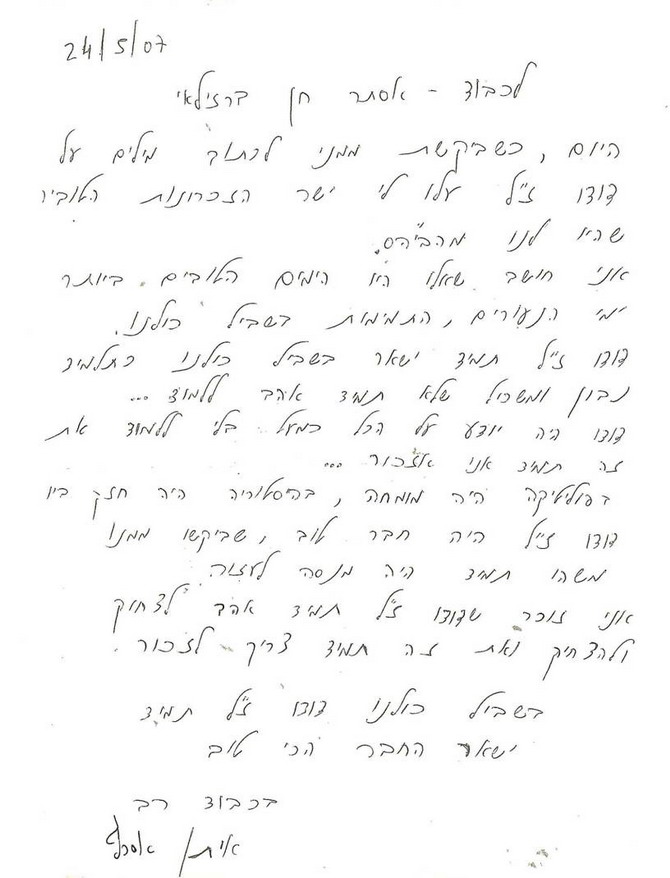 24/5/07
לכבוד - אסתר חן ברזילאי
היום, כשביקשת ממני לכתוב מילים על
דודו ז"ל עלו לי ישר הזכרונות הטובים
שהיו לנו מהביה"ס.
אני חושב שאלו היו הימים הטובים ביותר
ימי הנעורים, התמימות בשביל כולנו.
דודו ז"ל תמיד ישאר בשביל כולנו כתלמיד
נבון ומשכיל שלא תמיד אהב ללמוד...
דודו היה יודע על הכל כמעט בלי ללמוד את
זה תמיד אני אזכור...
בפוליטיקה היה מומחה, בהיסטוריה היה חזק
דודו ז"ל היה חבר טוב, שביקשו ממנו
משהו תמיד היה מנסה לעזור.
אני זוכר שדודו ז"ל תמיד אהב לצחוק
ולהצחיק ואת זה תמיד צריך לזכור.
בשביל כולנו דודו ז"ל תמיד
ישאר החבר הכי טוב
בכבוד רב
איתן אסרף